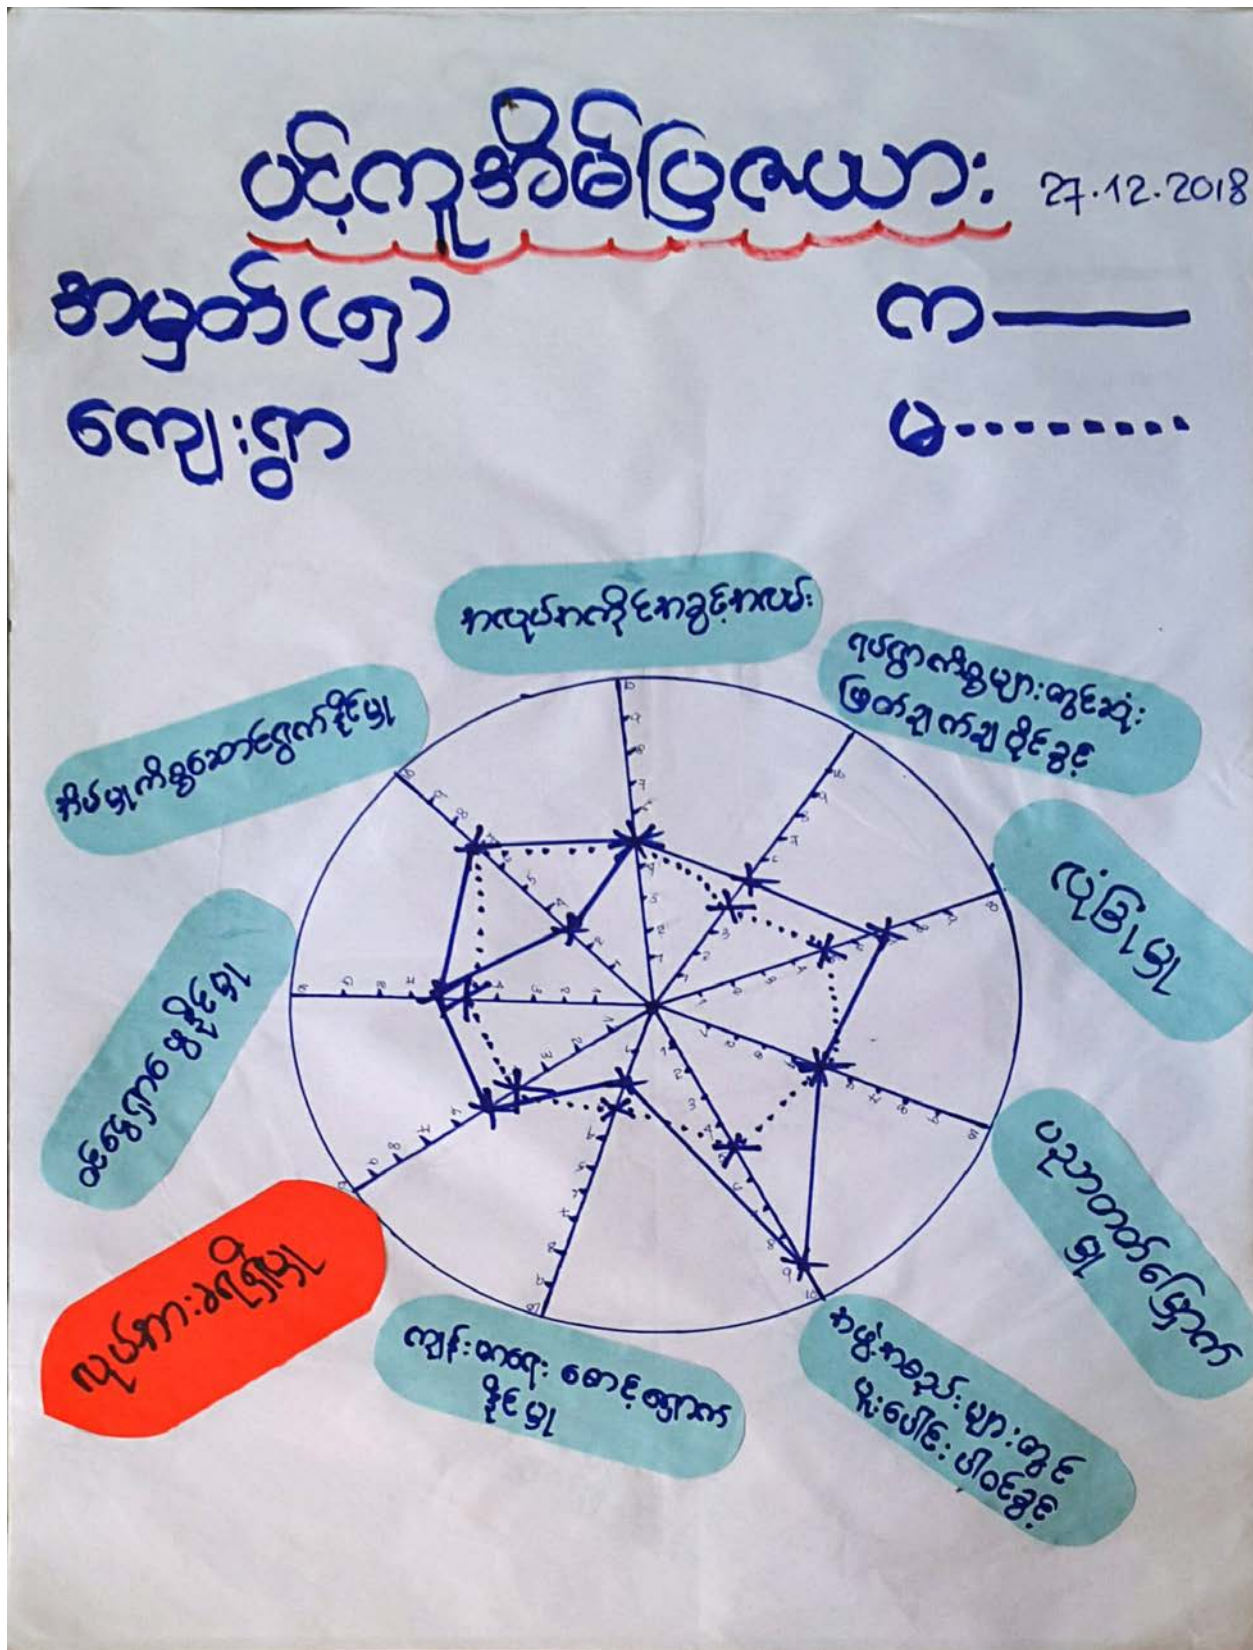 ပင့်ကူအိမ်ပြဇယား
27.12.2018
အမှတ်(၅)
က
ကျေးရွာ
မ
အလုပ်အကိုင်အခွင့်အလမ်း
ရပ်ရွာကိစ္စများတွင်ဆုံး
ဖြတ်ချက်ချ ပိုင်ခွင့်
လုံခြုံမှု
ပညာတတ်မြောက်
မှု
အဖွဲ့အစည်းများတွင်
ပူးပေါင်းပါဝင်ခွင့်
ကျန်းမာရေး စောင့်ရှောက်
နိုင်မှု
လုပ်အားခရရှိမှု
အိမ်မှုကိစ္စဆောင်ရွက်နိုင်မှု